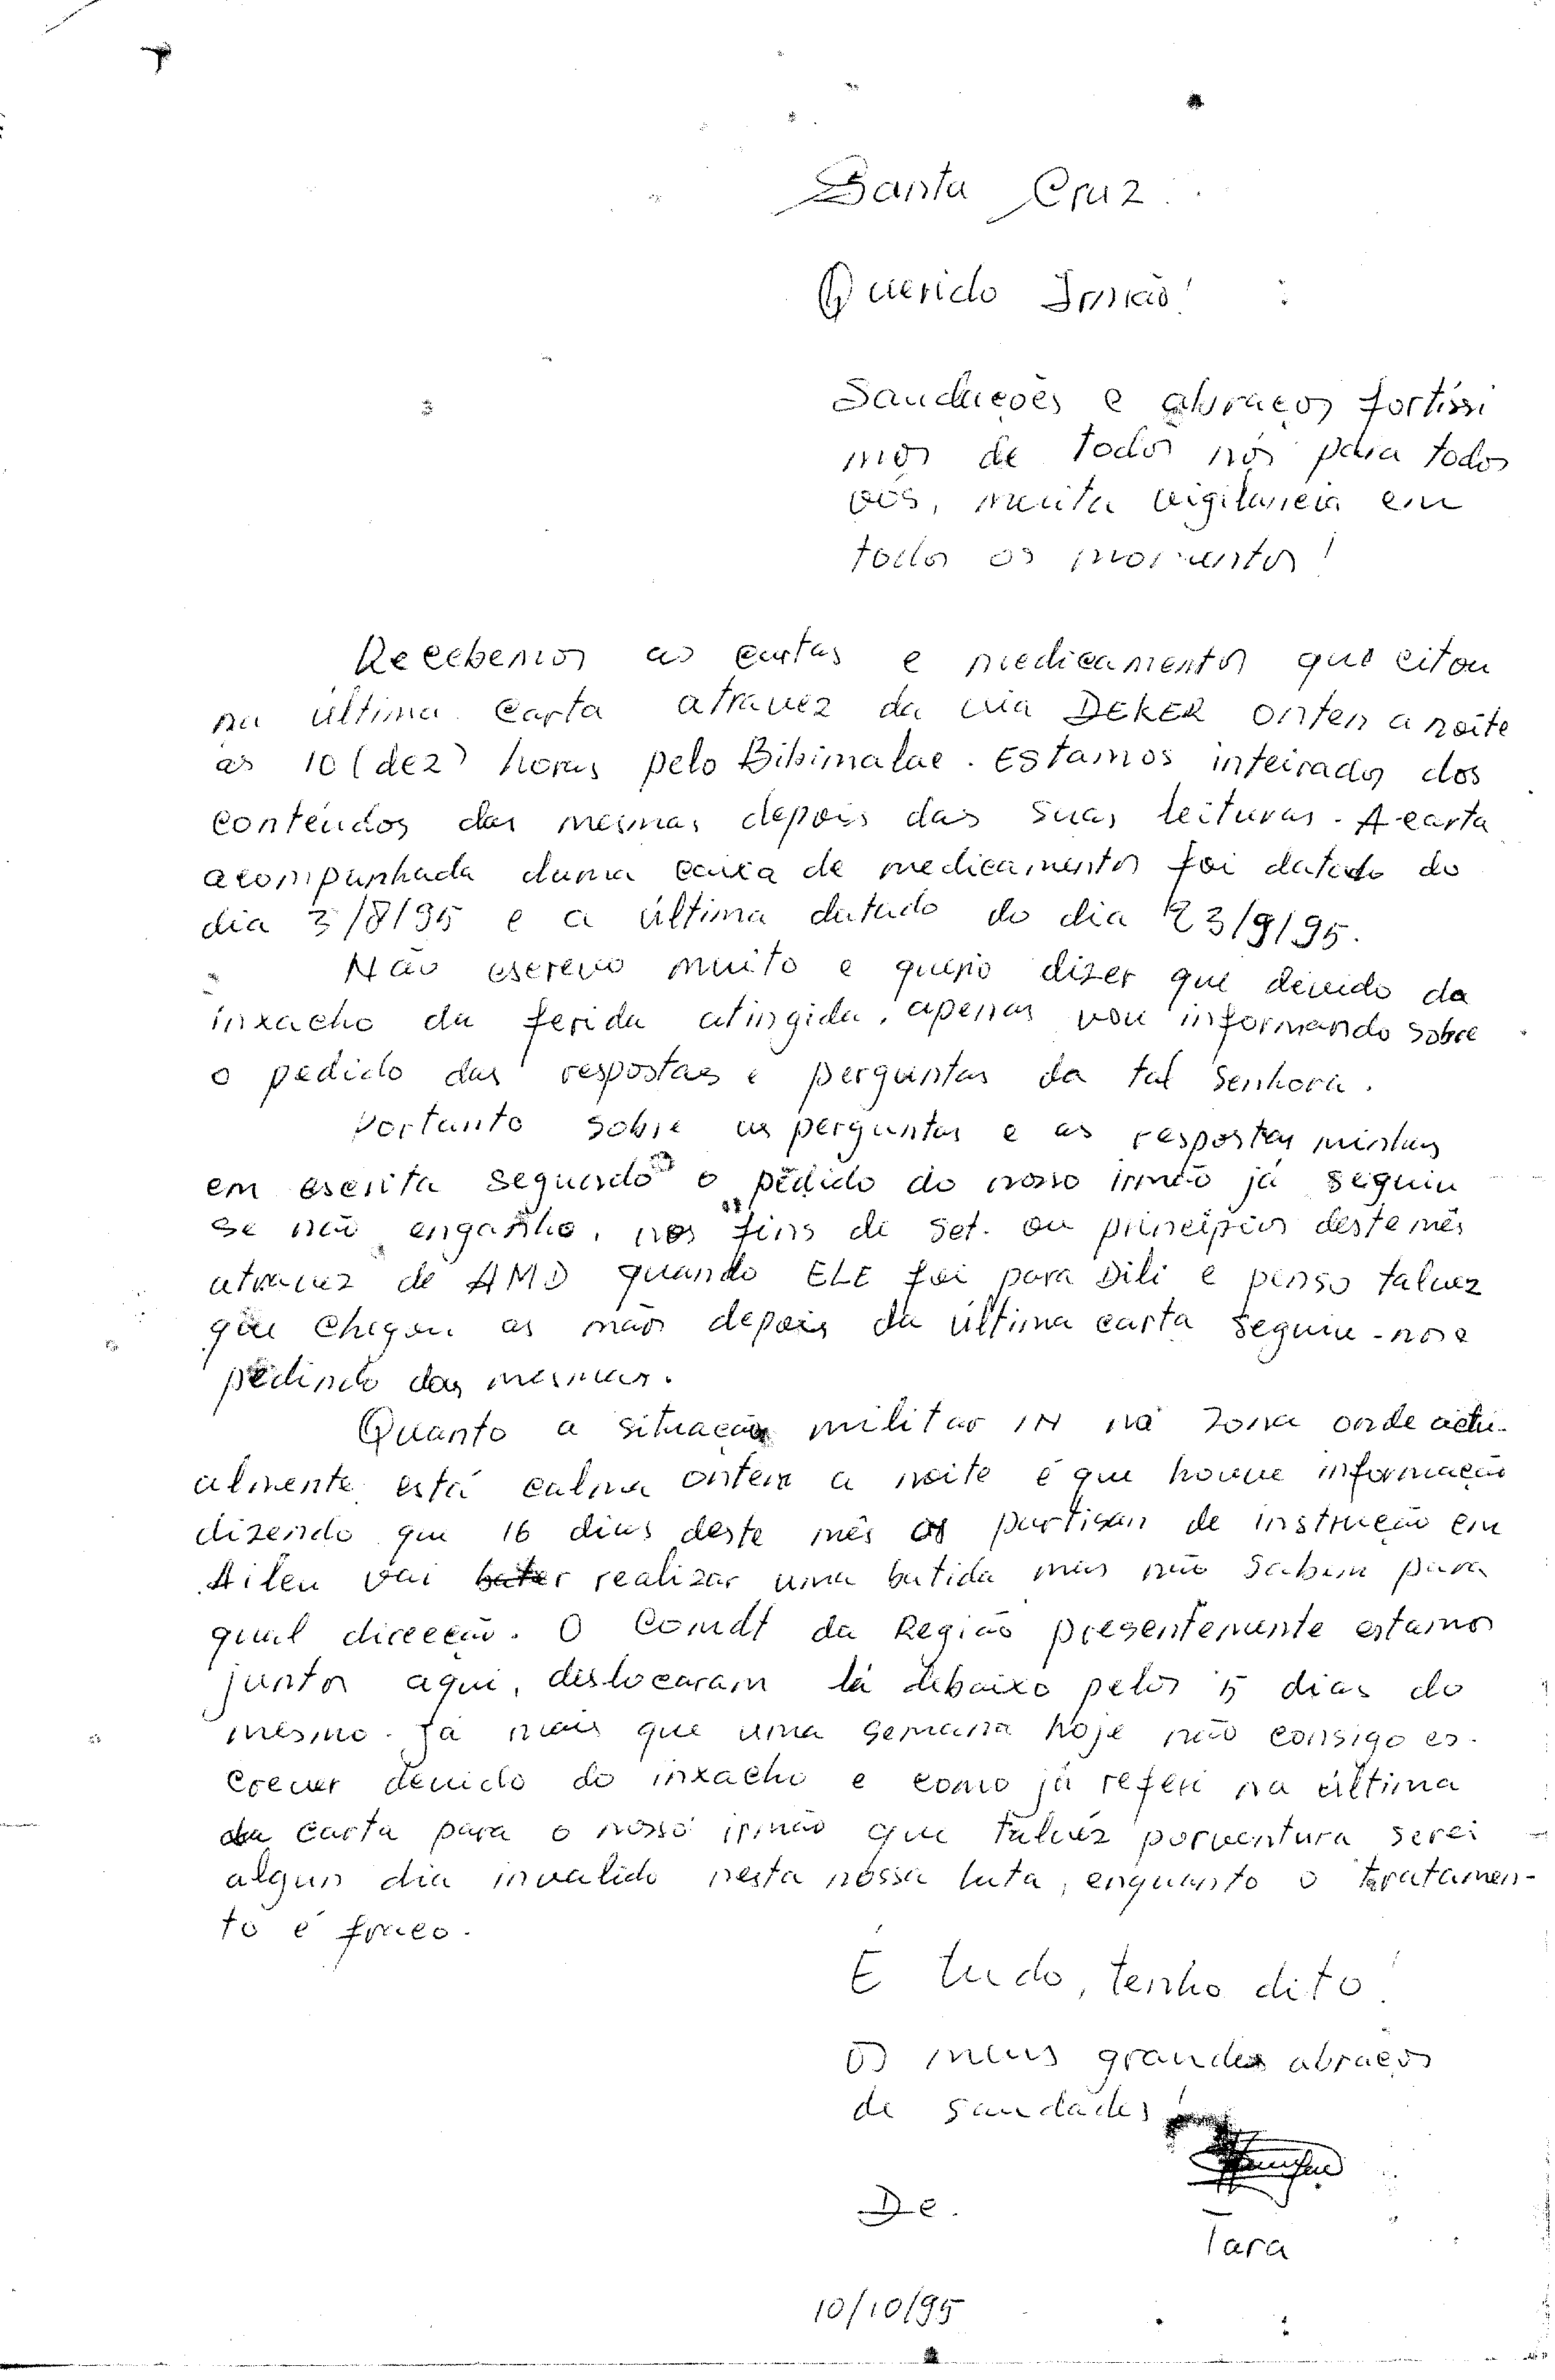 Santa Cruz
Querido Irmão!
Saudações e abraços fortíssi
mos de todos nós para todos
vós, muita vigilancia em
todos os momentos!
Recebemos as cartas e medicamentos que citou
na última carta atravez da via DEKER onten a noite
as 10 (dez) horas pelo Bibimalae. Estamos inteirados dos
conteúdos das mesmas depois das suas leituras. A carta
acompanhada duma caixa de medicamentos foi datado do
dia 3/8/95 e a última datado do dia 23/9/95.
Não escrevo muito e quero dizer que devido da
inxacho da ferida atingida, apenas vou informando sobre
o pedido das respostas e perguntas da tal senhora.
Portanto sobre as perguntas e as respostas minhas
em escrita segundo o pedido do nosso irmão já seguiu
se não enganho, nos fins de Set. ou princípios deste mês
atravez de AMD quando ELE foi para Dili e penso talvez
que chegou as mãos depois da última carta seguiu-nos
pedindo das mesmas.
Quanto a situação militar IN na zona onde actu-
almente está calma ontem a noite é que houve informação
dizendo que 16 dias deste mês os partisan de instrução em
Aileu vai realizar uma batida mas não sabem para
qual direcção. O Comdt da Região presentemente estamos
juntos aqui, deslocaram lá debaixo pelos 5 dias do
mesmo. Já mais que uma semana hoje não consigo es-
crever devido do inxacho e como já referi na última
da carta para o nosso irmão que talvez porventura serei
algun dia invalido nesta nossa luta, enquanto o tratamen-
to é fraco.
É tudo, tenho dito!
Os meus grandes abraços
de saudades!
De.
Tara
10/10/95